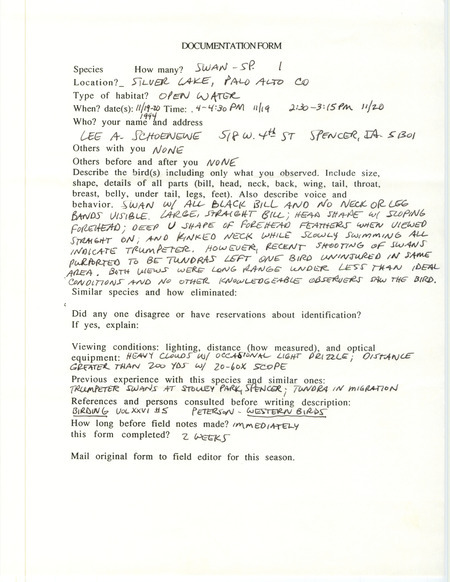 DOCUMENTATION FORM
Species How many? SWAN - SP. 1
Location? SILVER LAKE, PALO ALTO CO
Type of habitat? OPEN WATER
When? date(s): 11/19-20 1994 Time: 4-4:30 PM 11/19 2:30-3:15 PM 11/20
Who? your name and address
LEE A. SCHOENEWE 518 W. 4th ST SPENCER, IA. 51301
Others with you NONE
Others before and after you NONE
Describe the bird(s) including only what you observed. Include size,
shape, details of all parts (bill, head, neck, back, wing, tail, throat,
breast, belly, under tail, legs, feet). Also describe voice and
behavior. SWAN W/ ALL BLACK BILL AND NO NECK OR LEG
BANDS VISIBLE. LARGE, STRAIGHT BILL; HEAD SHAPE W/ SLOPING
FOREHEAD; DEEP U SHAPE OF FOREHEAD FEATHERS WHEN VIEWED
STRAIGHT ON; AND KINKED NECK WHILE SLOWLY SWIMMING ALL
INDICATE TRUMPETER. HOWEVER, RECENT SHOOTING OF SWANS
PURPORTED TO BE TUNDRAS LEFT ONE BIRD UNINJURED IN SAME
AREA. BOTH VIEWS WERE LONG RANGE UNDER LESS THAN IDEAL
CONDITIONS AND NO OTHER KNOWLEDGEABLE OBSERVERS SAW THE BIRD.
Similar species and how eliminated:
Did any one disagree or have reservations about identification?
If yes, explain:
Viewing conditions: lighting, distance (how measured), and optical
equipment: HEAVY CLOUDS W/ OCCASIONAL LIGHT DRIZZLE; DISTANCE
GREATER THAN 200 YDS W/ 20-60X SCOPE
Previous experience with this species and similar ones:
TRUMPETER SWANS AT STOLLEY PARK, SPENCER; TUNDRA IN MIGRATION
References and persons consulted before writing description:
BIRDING VOL XXVI #5 PETERSON - WESTERN BIRDS
How long before field notes made? IMMEDIATELY
this form completed? 2 WEEKS
Mail original form to field editor for this season.